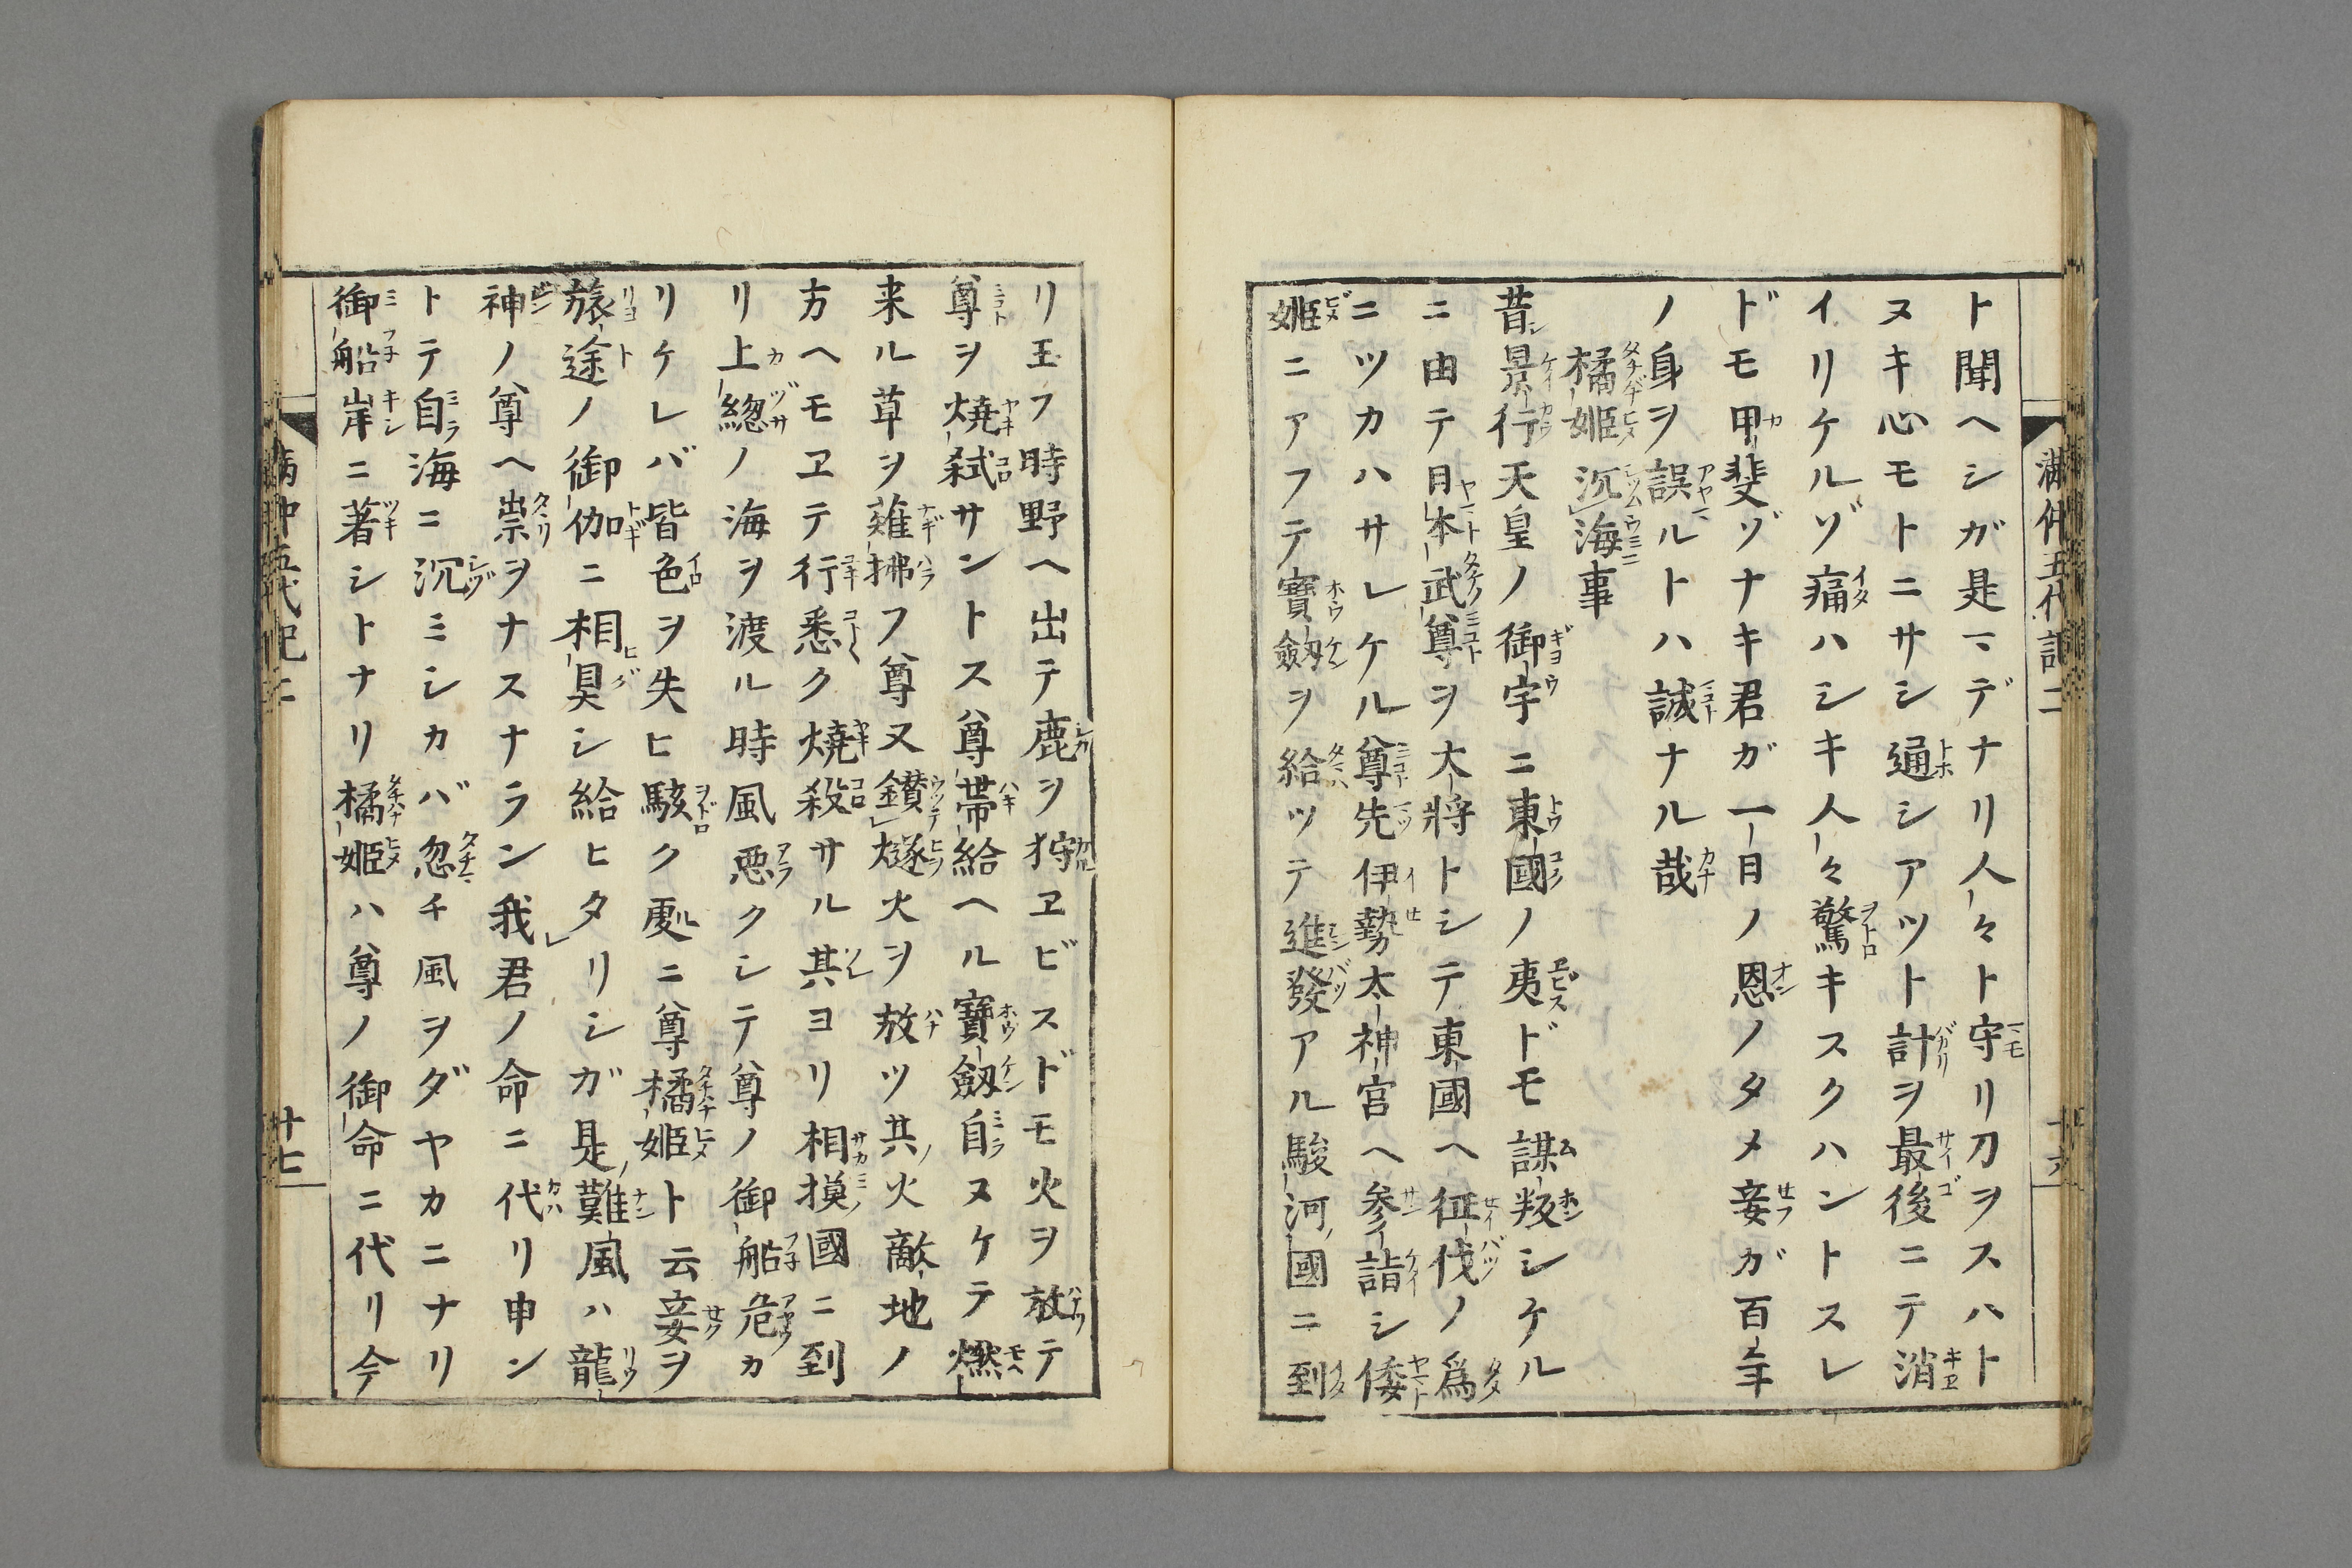 満仲五代記二
ト聞ヘシガ是マデナリ人々ト守リ刀ヲスハト
ヌキ心モトニサシ通シアツト計ヲ最後ニテ消
イリケルゾ痛ハシキ人々驚キスクハントスレ
ドモ甲斐ゾナキ君ガ一日ノ恩ノタメ妾ガ百年
ノ身ヲ誤ルトハ誠ナル哉
橘姫沉海事
昔景行天皇ノ御宇ニ東國ノ夷ドモ謀叛シケル
ニ由テ日本武尊ヲ大將トシテ東國ヘ征伐ノ爲
ニツカハサレケル尊先伊勢太神官ヘ参詣シ倭
姫ニアフテ寶劔ヲ給ツテ進發アル駿河國ニ到
リ玉フ時野ヘ出テ鹿ヲ狩ヱビスドモ火ヲ放テ
尊ヲ燒弑サントス尊帯給ヘル寶劔自ヌケテ燃
来ル草ヲ薙拂フ尊又鑚燧火ヲ放ツ其火敵地ノ
方ヘモヱテ行悉ク燒殺サル其ヨリ相摸國ニ到
リ上總ノ海ヲ渡ル時風悪クシテ尊ノ御船危カ
リケレバ皆色ヲ失ヒ駭ク處ニ尊橘姫ト云妾ヲ
旅途ノ御伽ニ相具シ給ヒタリシガ是難風ハ龍
神ノ尊ヘ祟ヲナスナラン我君ノ命ニ代リ申ン
トテ自海ニ沉ミシカバ忽チ風ヲダヤカニナリ
御船岸ニ著シトナリ橘姫ハ尊ノ御命ニ代リ今
廿七